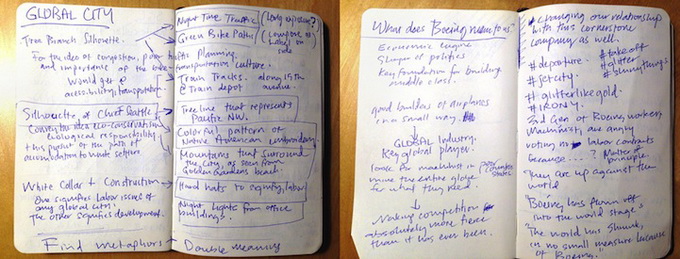 GLOBAL CITY
Tree Branch Silhouette.
For the idea of congestion, poor
planning
and importance of the
transportation culture.
Would get @
accessibility/transportation.
Silhouette of Chief Seattle
Convey the idea eco-conservation,
biological responsibility,
this pursuit of the path of
accomodation to white settlers
White Collar + Construction
One signifies labor issues of
any global city.
The other signifies development.
Find metaphors
Night Time Traffic (long exposure?)
Green Bike Paths (Compose w/
Label on
side
Train Tracks. along 15th
@ Train depot avenue.
Tree line that represents
Pacific NW.
Colorful pattern of
Native American embroidery
Mountains that surround
the city, as seen from
Golden Gardens beach
Hard hats to signify labor
Night lights from office
buildings.
Double meaning
What does Boeing mean to us?
Economic engine
Shaper of politics
Key foundation for building
middle class.
good builders of airplanes
in a small way.
GLOBAL Industry.
Key global player.
for machinist in
mine the entire globe
for what they need.
Making competition
absolutely more fierce
than it has ever been.
Changing our relationship
with this cornerstone
company as well.
#departure. #takeoff
#jetcity. #glitter
#shinythings
#glitterlikegold.
#IRONY.
3rd Gen of Boeing workers,
Machinists, are angry
voting no labor contracts
because...? Matter of
principle.
They are up against the
world
Boeing has flown off
into the world stage.
"The world has shrunk,
in no small measure because
of Boeing."